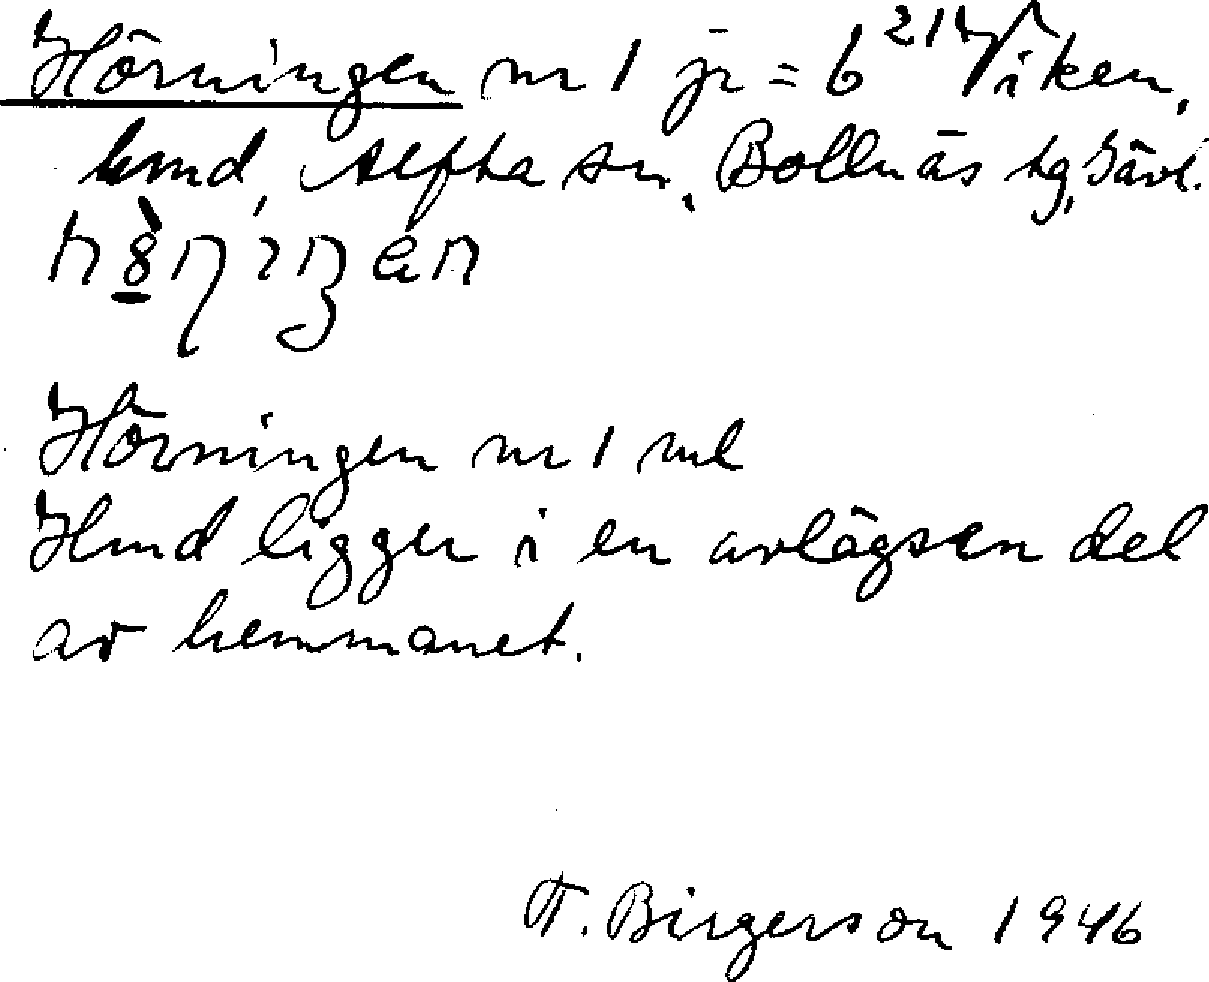 Hörningen nr 1 jr = b 21 Viken,
hmd, Alfta sn, Bollnäs tg, Gävl.
Hörningen nr 1 ml
Hmd ligger i en avlägsen del
av hemmanet.
Birgerson 1946